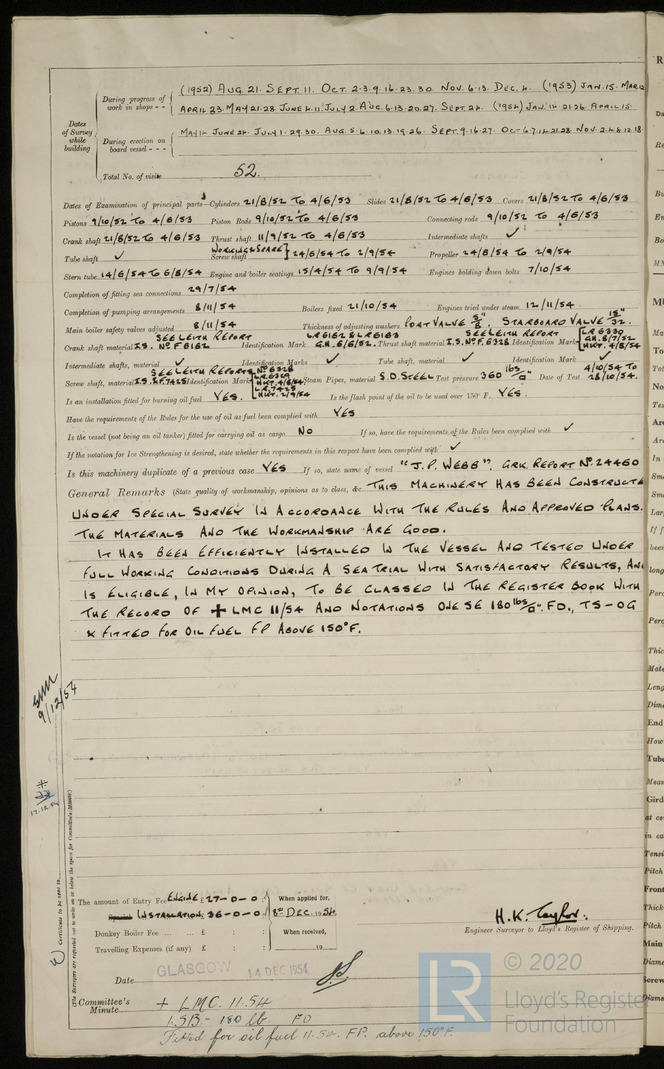 (1952) AUG. 21. SEPT. 11. OCT. 2.3.9.16.23.30. NOV. 6.13. DEC. 4. (1953) JAN. 15. MAR. 12
During progress of work in shops - -
APRIL 23 MAY 21.28 JUNE 4.11. JULY 2. AUG. 6.13.20.27. SEPT. 24. (1954) JAN. 14.21.26 APRIL 15.
Dates of Survey while building
During erection on board vessel - - -
MAY 14 JUNE 24. JULY 1.29.30. AUG. 5.6.10.13.19.26. SEPT. 9.16.27. OCT. 6.7.12.21.28 NOV. 2.4.8.12.18
Total No. of visits 52.
Dates of Examination of principal parts—Cylinders 21/8/52 TO 4/6/53 Slides 21/8/52 TO 4/6/53 Covers 21/8/52 TO 4/6/53
Pistons 9/10/52 TO 4/6/53 Piston Rods 9/10/52 TO 4/6/53 Connecting rods 9/10/52 TO 4/6/53
Crank shaft 21/8/52 TO 4/6/53 Thrust shaft 11/9/52 TO 4/6/53 Intermediate shafts ✓
Tube shaft ✓ WORKING & SPARE Screw shaft } 24/6/54 TO 2/9/54 Propeller 24/8/54 TO 2/9/54
Stern tube 14/6/54 TO 6/8/54 Engine and boiler seatings 15/4/54 TO 9/9/54 Engines holding down bolts 7/10/54
Completion of fitting sea connections 29/7/54
Completion of pumping arrangements 8/11/54 Boilers fixed 21/10/54 Engines tried under steam 12/11/54
Main boiler safety valves adjusted 8/11/54 Thickness of adjusting washers PORT VALVE 3/8". STARBOARD VALVE 15/32".
Crank shaft material I.S. SEE LEITH REPORT No. F6162 Identification Mark LR 6162 & LR 6163 G.H. 6/6/52. Thrust shaft material I.S. SEE LEITH REPORT No. F6328 Identification Mark LR 6330 G.H. 8/7/52 HKT. 4/8/54
Intermediate shafts, material ✓ Identification Marks ✓ Tube shaft, material ✓ Identification Mark ✓
Screw shaft, material I.S. SEE LEITH REPORTS No. 6328 & F.7425 Identification Mark LR 6329 HKT. 4/8/54 LR 7425 HKT. 2/9/54 Steam Pipes, material S.D. STEEL Test pressure 360 lbs/□" Date of Test 4/10/54 TO 28/10/54.
Is an installation fitted for burning oil fuel YES. Is the flash point of the oil to be used over 150° F. YES.
Have the requirements of the Rules for the use of oil as fuel been complied with YES
Is the vessel (not being an oil tanker) fitted for carrying oil as cargo NO If so, have the requirements of the Rules been complied with ✓
If the notation for Ice Strengthening is desired, state whether the requirements in this respect have been complied with ✓
Is this machinery duplicate of a previous case YES If so, state name of vessel "J. P. WEBB". GRK. REPORT No. 24460
General Remarks (State quality of workmanship, opinions as to class, &c. THIS MACHINERY HAS BEEN CONSTRUCTE
UNDER SPECIAL SURVEY IN ACCORDANCE WITH THE RULES AND APPROVED PLANS.
THE MATERIALS AND THE WORKMANSHIP ARE GOOD.
IT HAS BEEN EFFICIENTLY INSTALLED IN THE VESSEL AND TESTED UNDER
FULL WORKING CONDITIONS DURING A SEA TRIAL WITH SATISFACTORY RESULTS, AN
IS ELIGIBLE, IN MY OPINION, TO BE CLASSED IN THE REGISTER BOOK WITH
THE RECORD OF + LMC 11/54 AND NOTATIONS ONE SE 180 lbs/□". FD., TS-OG
& FITTED FOR OIL FUEL FP ABOVE 150°F.
9/12/54
17.12.54
Certificate to be sent to
(The Surveyors are requested not to write on or below the space for Committee's Minute)
The amount of Entry Fee ENGINE £27-0-0 When applied for,
INSTALLATION £36-0-0 8TH DEC. 1954
Donkey Boiler Fee ... ... £ : : When received,
Travelling Expenses (if any) £ : : 19
H. K. Taylor.
Engineer Surveyor to Lloyd's Register of Shipping.
Date GLASGOW 14 DEC 1954
Committee's Minute + LMC. 11.54
1.S.B.- 180 lb. FD
Fitted for oil fuel 11.54. F.P. above 150°F.
LR © 2020
Lloyd's Registe
Foundation